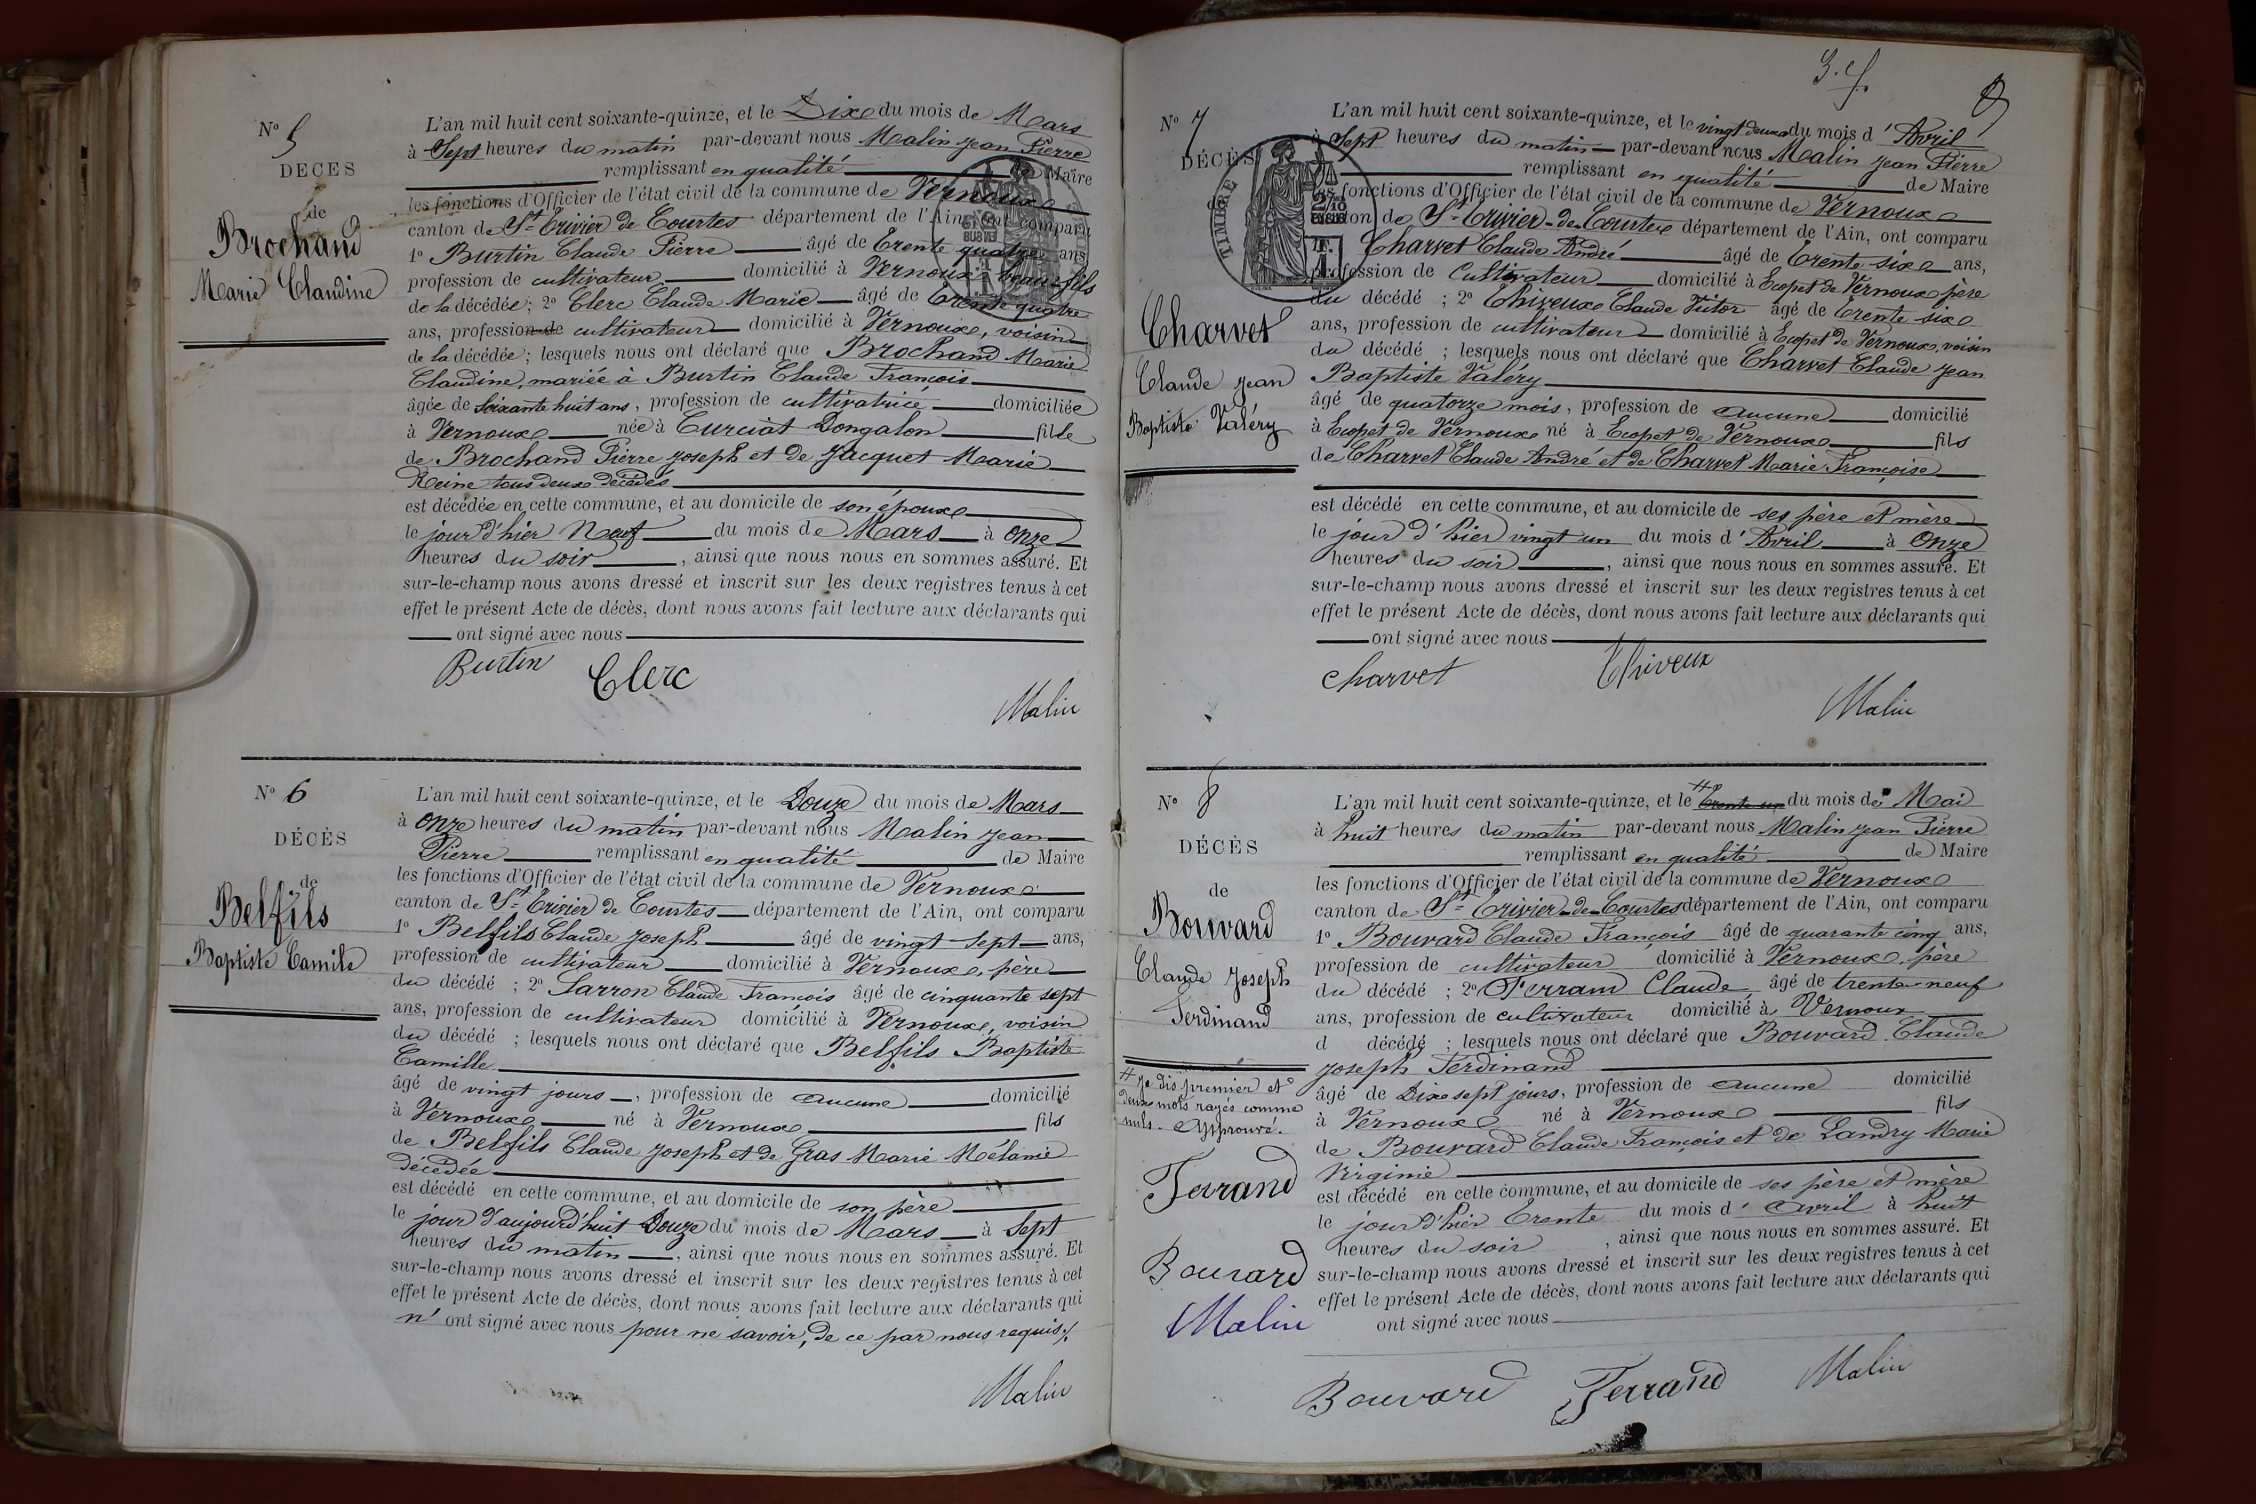 N° 5
DÉCÈS
de
Brochand
Marie Claudine
L'an mil huit cent soixante-quinze, et le Dix du mois de Mars
à Sept heures du matin par-devant nous Malin Jean Pierre
remplissant en qualité de Maire
les fonctions d'Officier de l'état civil de la commune de Vernoux
canton de St Trivier de Courtes département de l'Ain, ont comparu
1° Burtin Claude Pierre âgé de Trente quatre ans,
profession de cultivateur domicilié à Vernoux beau-fils
de la décédée ; 2° Clerc Claude Marie âgé de Trente quatre
ans, profession de cultivateur domicilié à Vernoux, voisin
de la décédée ; lesquels nous ont déclaré que Brochand Marie
Claudine, mariée à Burtin Claude François
âgée de Soixante huit ans, profession de cultivatrice domiciliée
à Vernoux née à Curciat Dongalon fille
de Brochand Pierre Joseph et de Jacquet Marie
Reine tous deux décédés
est décédée en cette commune, et au domicile de son époux
le jour d'hier Neuf du mois de Mars à Onze
heures du soir, ainsi que nous nous en sommes assuré. Et
sur-le-champ nous avons dressé et inscrit sur les deux registres tenus à cet
effet le présent Acte de décès, dont nous avons fait lecture aux déclarants qui
ont signé avec nous
Burtin Clerc
Malin
N° 6
DÉCÈS
de
Belfils
Baptiste Camile
L'an mil huit cent soixante-quinze, et le Douze du mois de Mars
à Onze heures du matin par-devant nous Malin Jean
Pierre remplissant en qualité de Maire
les fonctions d'Officier de l'état civil de la commune de Vernoux
canton de St Trivier de Courtes département de l'Ain, ont comparu
1° Belfils Claude Joseph âgé de vingt Sept ans,
profession de cultivateur domicilié à Vernoux, père
du décédé ; 2° Sarron Claude François âgé de cinquante sept
ans, profession de cultivateur domicilié à Vernoux, voisin
du décédé ; lesquels nous ont déclaré que Belfils Baptiste
Camille
âgé de vingt jours, profession de aucune domicilié
à Vernoux né à Vernoux fils
de Belfils Claude Joseph et de Gras Marie Mélanie
décédée
est décédé en cette commune, et au domicile de son père
le jour d'aujourd'huit Douze du mois de Mars à Sept
heures du matin, ainsi que nous nous en sommes assuré. Et
sur-le-champ nous avons dressé et inscrit sur les deux registres tenus à cet
effet le présent Acte de décès, dont nous avons fait lecture aux déclarants qui
n' ont signé avec nous pour ne savoir, de ce par nous requis/.
Malin
N° 7
DÉCÈS
TIMBRE
Charvet
Claude Jean
Baptiste Valéry
L'an mil huit cent soixante-quinze, et le vingt deux du mois d'Avril
à Sept heures du matin par-devant nous Malin Jean Pierre
remplissant en qualité de Maire
les fonctions d'Officier de l'état civil de la commune de Vernoux
canton de St Trivier-de-Courtes département de l'Ain, ont comparu
Charvet Claude André âgé de Trente six ans,
profession de Cultivateur domicilié à Ecopet de Vernoux père
du décédé ; 2° Thiveux Claude Victor âgé de Trente six
ans, profession de cultivateur domicilié à Ecopet de Vernoux, voisin
du décédé ; lesquels nous ont déclaré que Charvet Claude Jean
Baptiste Valéry
âgé de quatorze mois, profession de aucune domicilié
à Ecopet de Vernoux né à Ecopet de Vernoux fils
de Charvet Claude André et de Charvet Marie Françoise
est décédé en cette commune, et au domicile de ses père et mère
le jour d'hier vingt un du mois d'Avril à Onze
heures du soir, ainsi que nous nous en sommes assuré. Et
sur-le-champ nous avons dressé et inscrit sur les deux registres tenus à cet
effet le présent Acte de décès, dont nous avons fait lecture aux déclarants qui
ont signé avec nous
Charvet Thiveux
Malin
N° 8
DÉCÈS
de
Bouvard
Claude Joseph
Ferdinand
# Je dis premier et
deux mots rayés comme
nuls. Approuvé.
Ferrand
Bouvard
Malin
L'an mil huit cent soixante-quinze, et le # Trente un du mois de Mai
à huit heures du matin par-devant nous Malin Jean Pierre
remplissant en qualité de Maire
les fonctions d'Officier de l'état civil de la commune de Vernoux
canton de St Trivier-de-Courtes département de l'Ain, ont comparu
1° Bouvard Claude François âgé de quarante cinq ans,
profession de cultivateur domicilié à Vernoux, père
du décédé ; 2° Ferrand Claude âgé de trente neuf
ans, profession de cultivateur domicilié à Vernoux
d décédé ; lesquels nous ont déclaré que Bouvard Claude
Joseph Ferdinand
âgé de Dix sept jours, profession de aucune domicilié
à Vernoux né à Vernoux fils
de Bouvard Claude François et de Landry Marie
Virginie
est décédé en cette commune, et au domicile de ses père et mère
le jour d'hier Trente du mois d'Avril à huit
heures du soir, ainsi que nous nous en sommes assuré. Et
sur-le-champ nous avons dressé et inscrit sur les deux registres tenus à cet
effet le présent Acte de décès, dont nous avons fait lecture aux déclarants qui
ont signé avec nous
Bouvard Ferrand Malin